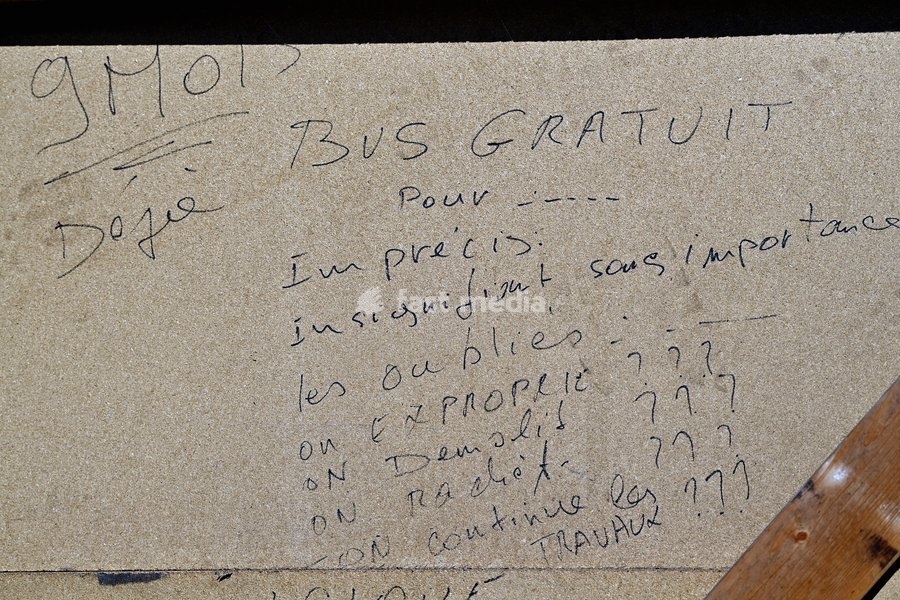 9 MOIS
Déjà
BUS GRATUIT
Pour -----
Imprécis.
Insignifiant sans importance
les oubliés - - ---
on EXPROPRIE ???
ON Démolit ???
ON Rachèt. ???
-ON continue les
TRAVAUX ???
fact media